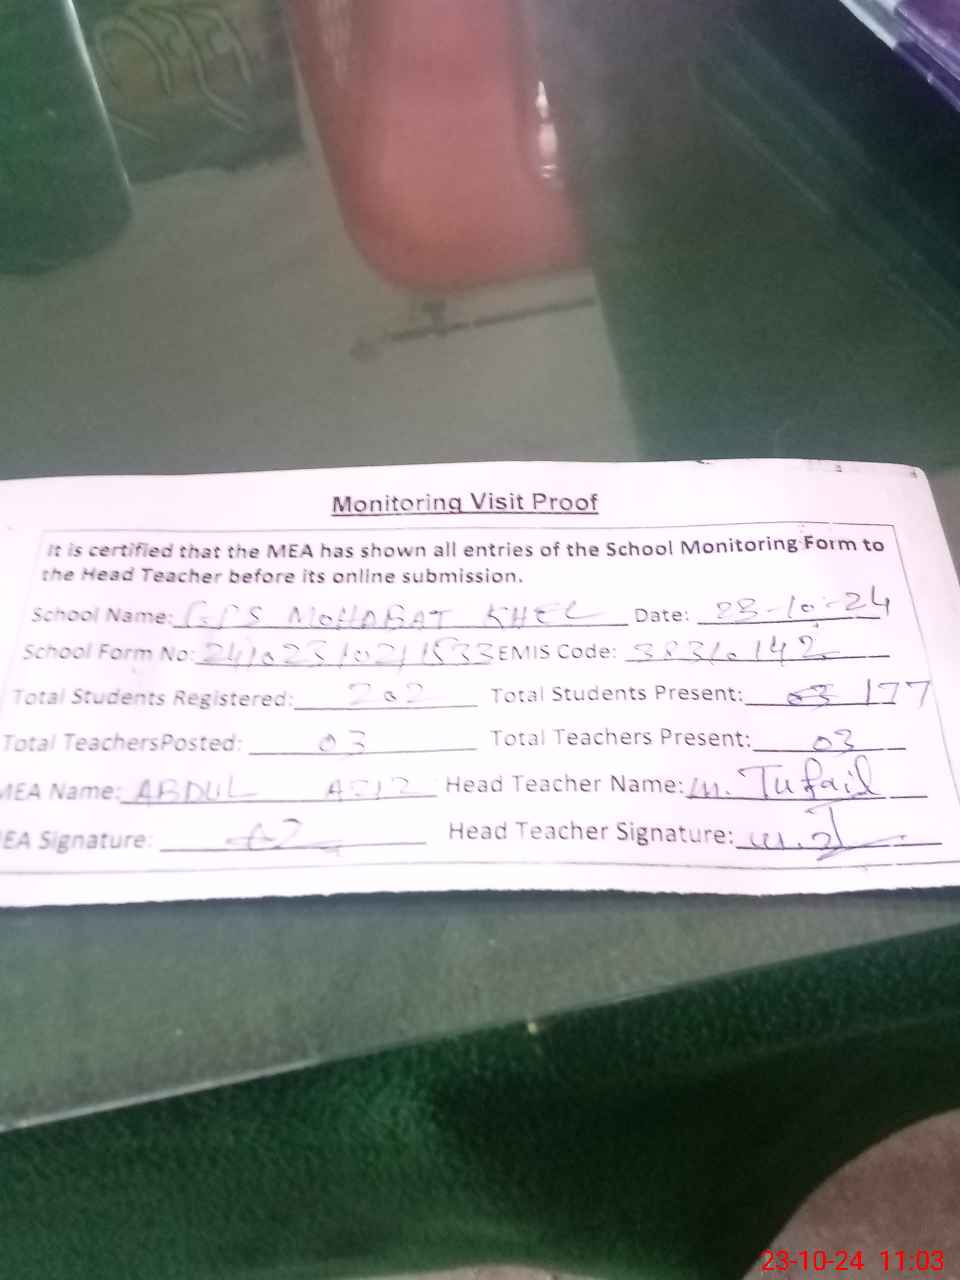 Monitoring Visit Proof
It is certified that the MEA has shown all entries of the School Monitoring Form to
the Head Teacher before its online submission.
School Name: GPS MOHABAT KHEL Date: 23-10-24
School Form No: EMIS Code:
Total Students Registered: 202 Total Students Present: 03 177
Total TeachersPosted: 03 Total Teachers Present: 03
MEA Name: ABDUL AZIZ Head Teacher Name: M. Tufail
EA Signature: Head Teacher Signature:
23-10-24 11:03